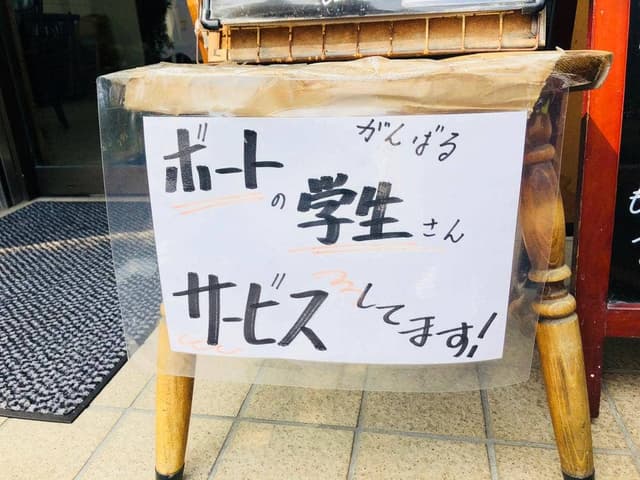 がんばる
ボートの学生さん
サービスしてます!